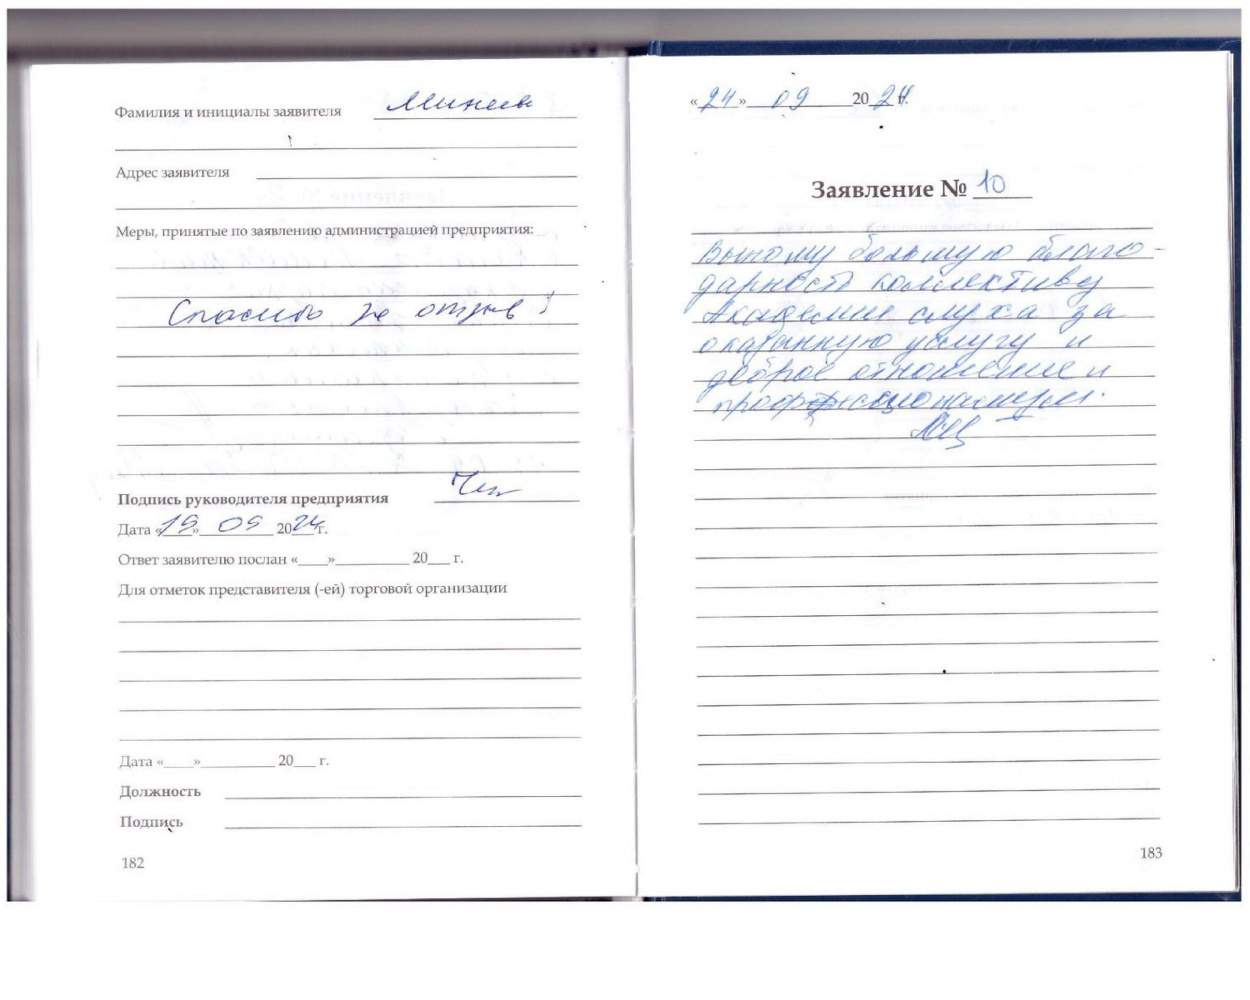 Фамилия и инициалы заявителя
Адрес заявителя
Меры, принятые по заявлению администрацией предприятия:
Спасибо за отзыв!
Подпись руководителя предприятия
Дата «19» 09 2024 г.
Ответ заявителю послан «____»__________ 20___ г.
Для отметок представителя (-ей) торговой организации
Дата «____»__________ 20___ г.
Должность
Подпись
182
«24» 09 2024 г.
Заявление № 10
Выношу большую благо-
дарность коллективу
Академии слуха за
оказанную услугу и
доброе отношение и
183